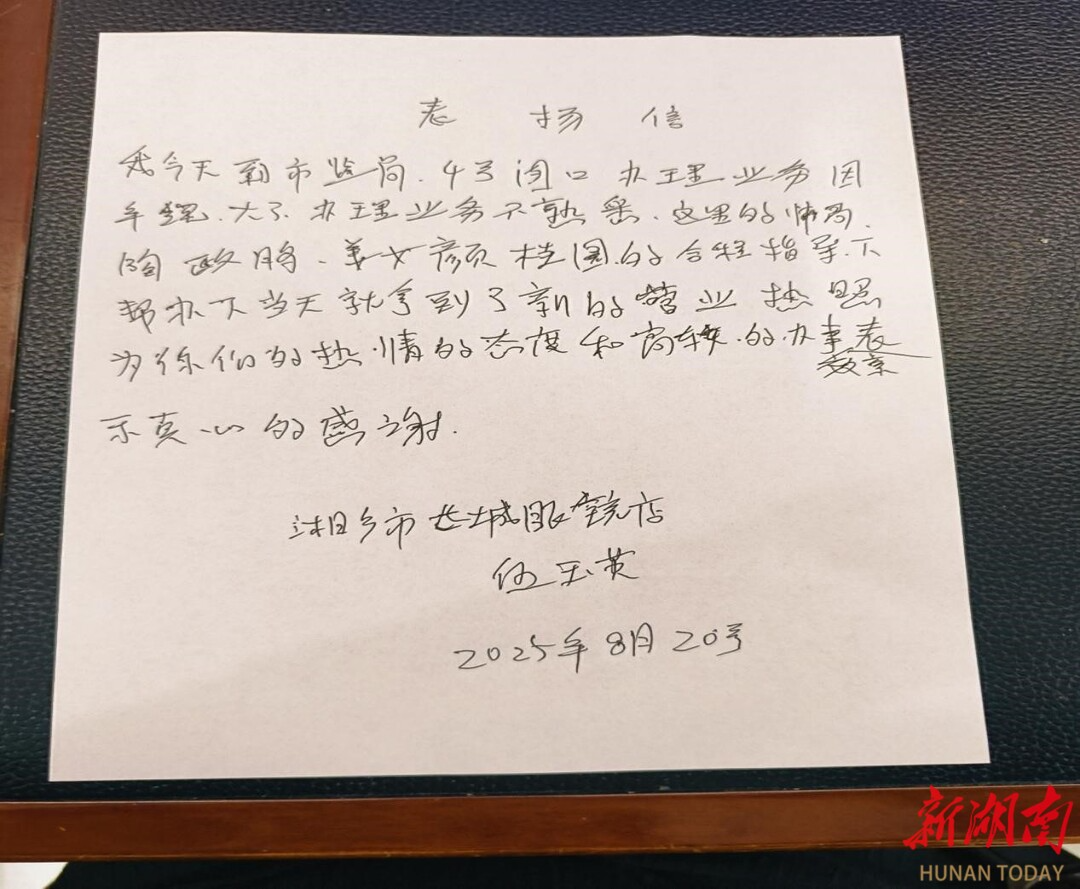 表扬信
我今天到市监局.4号窗口办理业务因
年纪.大了.办理业务不熟悉.这里的帅哥.
陶政腾、美女颜桂圆的全程指导.下
帮办下当天就拿到了新的营业执照
为你们的热情的态度和高效的办事表
效率
示真心的感谢.
湘乡市长城服装店
伍玉英
2025年8月20号
新湖南
HUNAN TODAY